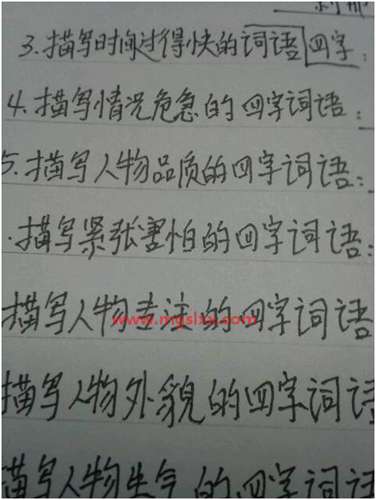 3.描写时间过得快的词语四字:
4.描写情况危急的四字词语:
5.描写人物品质的四字词语:
.描写紧张害怕的四字词语:
描写人物专注的四字词语
www.mgslxx.com
描写人物外貌的四字词语
描写人物生气的四字词语